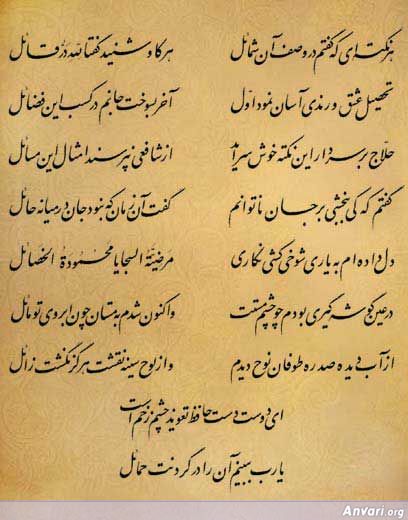 هر نکته‌ای که گفتم در وصف آن شمائل هر کاو شنید گفتا لله در قائل
تحصیل عشق و رندی آسان نمود اول آخر بسوخت جانم در کسب این فضائل
حلاج بر سر دار این نکته خوش سرآید از شافعی نپرسند امثال این مسائل
گفتم که کی ببخشی بر جان ناتوانم گفت آن زمان که نبود جان در میانه حائل
دل داده‌ام به یاری شوخی کشی نگاری مرضیة السجایا محمودة الخصائل
در عین گوشه‌گیری بودم چو چشم مستت و اکنون شدم به مستان چون ابروی تو مائل
از آب دیده صد ره طوفان نوح دیدم و از لوح سینه نقشت هرگز نگشت زائل
ای دوست دست حافظ تعویذ چشم زخم است
یا رب ببینم آن را در گردنت حمائل
Anvari.org